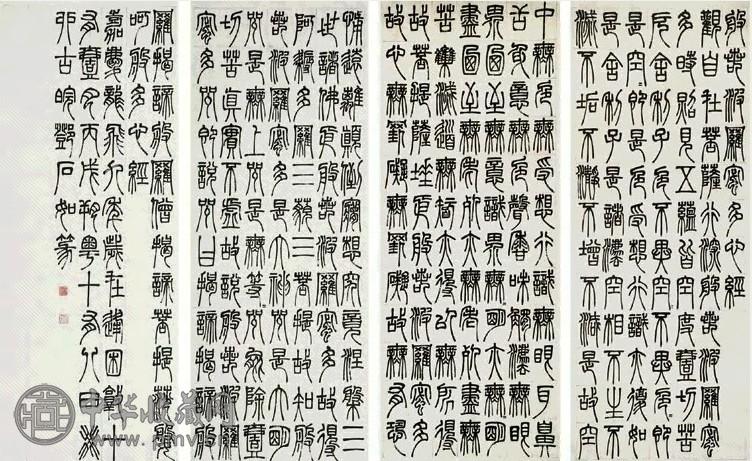 般若波羅蜜多心經
觀自在菩薩行深般若波羅蜜
多時照見五蘊皆空度壹切苦
厄舍利子色不異空空不異色色即
是空空即是色受想行識亦復如
是舍利子是諸法空相不生不
滅不垢不淨不增不減是故空
中無色無受想行識無眼耳鼻
舌身意無色聲香味觸法無眼
界乃至無意識界無無明亦無無明
盡乃至無老死亦無老死盡無
苦集滅道無智亦無得以無所得
故菩提薩埵依般若波羅蜜多
故心無罣礙無罣礙故無有恐
怖遠離顛倒夢想究竟涅槃三
世諸佛依般若波羅蜜多故得
阿耨多羅三藐三菩提故知般
若波羅蜜多是大神咒是大明
咒是無上咒是無等等咒能除壹
切苦真實不虛故說般若波羅
蜜多咒即說咒曰揭諦揭諦般
羅揭諦般羅僧揭諦菩提薩
呵般多心經
嘉慶龍飛九年歲在困敦十
有壹月丙戌朔粵十有八日
卯古皖鄧石如篆
中华收藏网